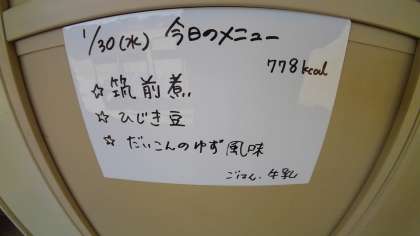 1/30(水) 今日のメニュー
778kcal
☆ 筑前煮
☆ ひじき豆
☆ だいこんのゆず風味
ごはん、牛乳